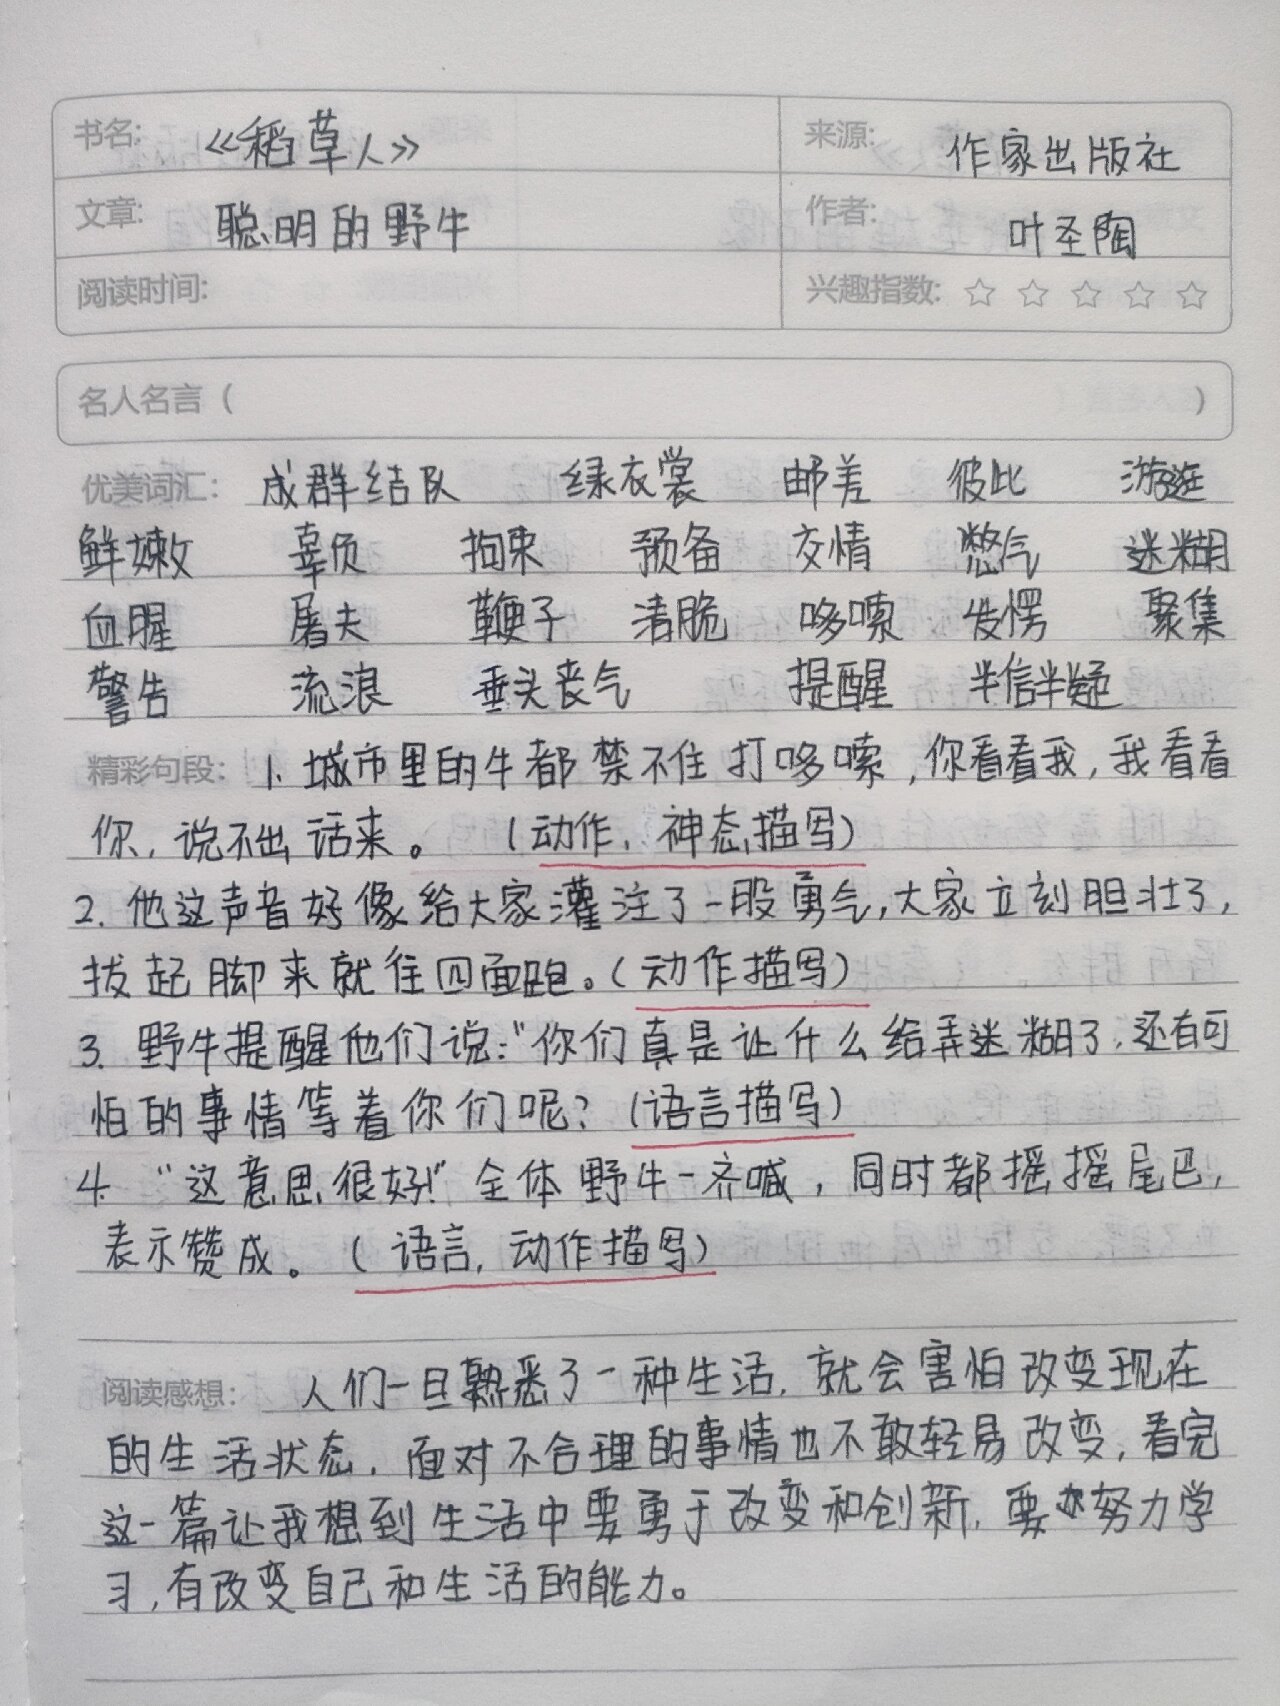 书名: 《稻草人》 来源: 作家出版社
文章: 聪明的野牛 作者: 叶圣陶
阅读时间: 兴趣指数: ☆ ☆ ☆ ☆ ☆
名人名言 ( )
优美词汇: 成群结队 绿衣裳 邮差 彼此 游逛
鲜嫩 辜负 拘束 预备 交情 憋气 迷糊
血腥 屠夫 鞭子 清脆 哆嗦 发愣 聚集
警告 流浪 垂头丧气 提醒 半信半疑
精彩句段: 1. 城市里的牛都禁不住打哆嗦,你看看我,我看看
你,说不出话来。 (动作,神态描写)
2. 他这声音好像给大家灌注了一股勇气,大家立刻胆壮了,
拔起脚来就往四面跑。(动作描写)
3. 野牛提醒他们说:"你们真是让什么给弄迷糊了,还有可
怕的事情等着你们呢? (语言描写)
4. "这意思很好!"全体野牛一齐喊,同时都摇摇尾巴,
表示赞成。 (语言,动作描写)
阅读感想: 人们一旦熟悉了一种生活,就会害怕改变现在
的生活状态,面对不合理的事情也不敢轻易改变,看完
这一篇让我想到生活中要勇于改变和创新,要努力学
习,有改变自己和生活的能力。